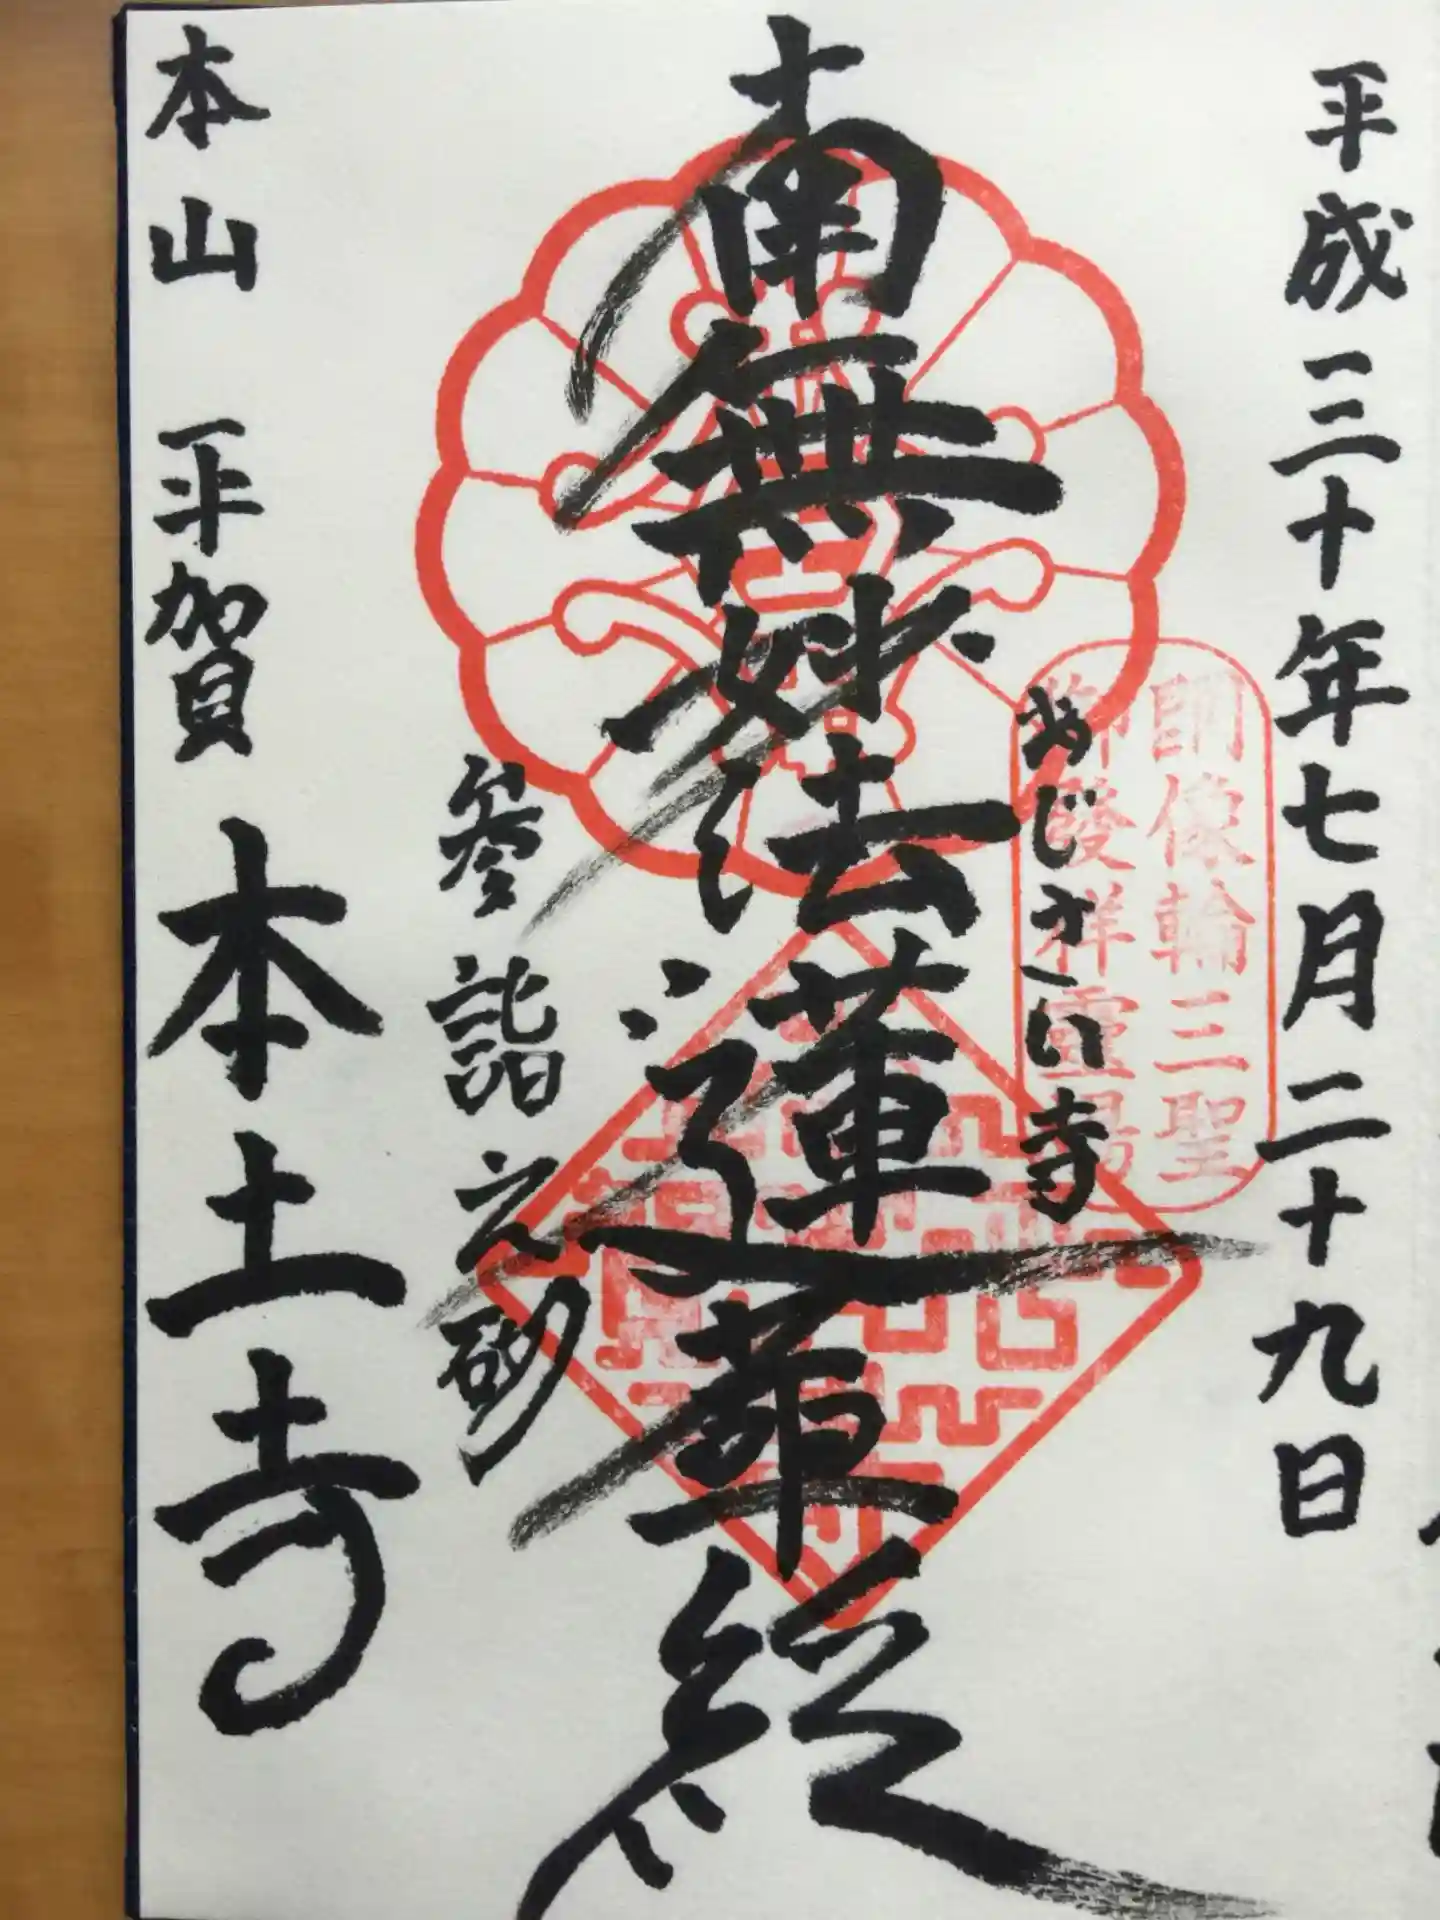 平成三十年七月二十九日
師像輪三聖
師發祥靈場
あじさい寺
南無妙法蓮華経
参詣之砌
本山 平賀 本土寺